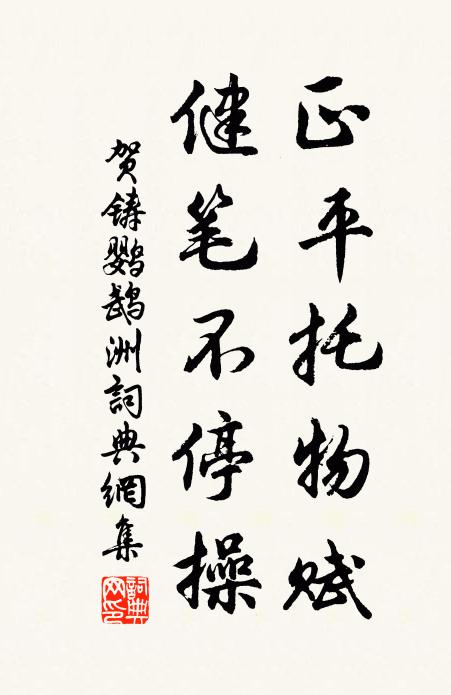 正平托物赋
健笔不停操
贺铸鹦鹉洲詞典網集
詞典网印